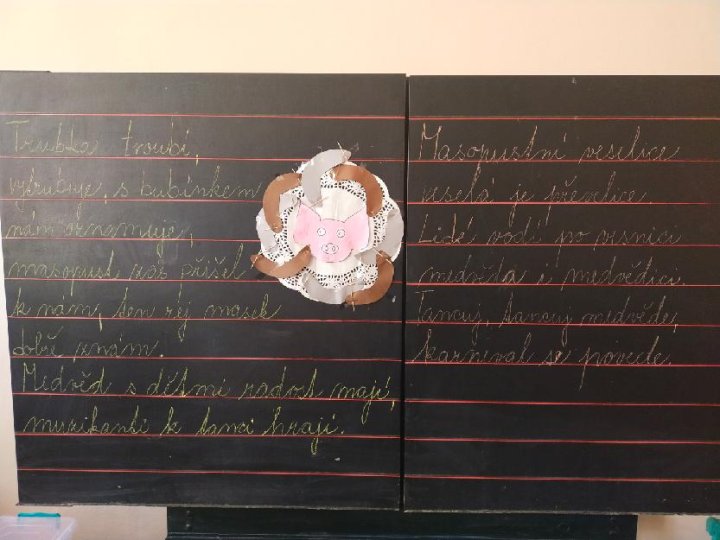 Trubka troubí,
vytrubuje, s bubínkem
nám oznamuje,
masopust už přišel
k nám, ten rej masek
dobře znám.
Medvěd s dětmi radost mají,
muzikanti k tanci hrají.
Masopustní veselice
veselá je převelice
Lidé vodí po vesnici
medvěda i medvědici.
Tancuj, tancuj medvěde,
karneval se povede.